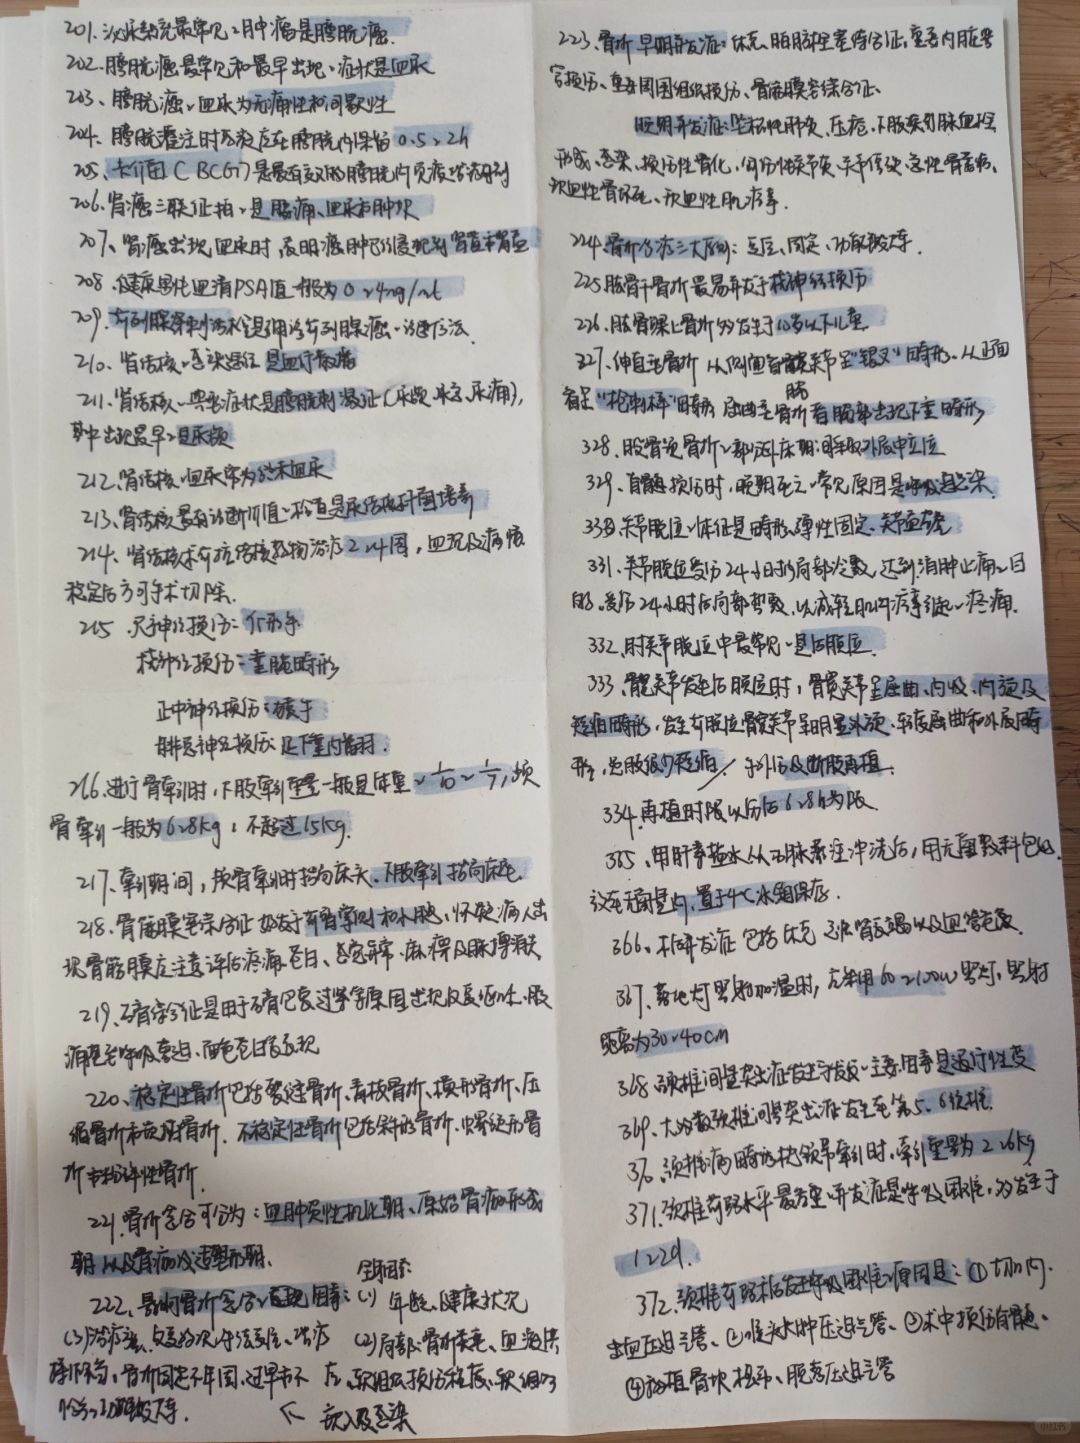 201.泌尿系统最常见的肿瘤是膀胱癌.
202.膀胱癌最常见和最早出现的症状是血尿
203、膀胱癌的血尿为无痛性和间歇性
204、膀胱灌注时药液应在膀胱内保留0.5~2h
205、卡介苗(BCG)是最有效的膀胱内免疫治疗剂
206、肾癌三联征指的是腰痛、血尿和肿块
207、肾癌出现血尿时,表明癌肿已侵犯到肾盏和肾盂
208.健康男性血清PSA值一般为0~4ng/ml
209.前列腺穿刺活检是确诊前列腺癌的诊断方法.
210、肾结核的感染途径是血行散播
211、肾结核的典型症状是膀胱刺激征(尿频、尿急、尿痛),
其中出现最早的是尿频
212.肾结核的血尿常为终末血尿
213.肾结核最有诊断价值的检查是尿结核杆菌培养
214、肾结核术前抗结核药物治疗2~4周,血沉及病情
稳定后方可手术切除.
215.尺神经损伤:爪形手
桡神经损伤:垂腕畸形
正中神经损伤:猿手
腓总神经损伤:足下垂内翻.
216.进行骨牵引时,下肢牵引重量一般是体重的1/10~1/7,颅
骨牵引一般为6~8kg,不超过15kg.
217、牵引期间,颅骨牵引时抬高床头、下肢牵引抬高床尾.
218、骨筋膜室综合征好发于前臂掌侧和小腿,怀疑病人出
现骨筋膜应注意评估疼痛、苍白、感觉异常、麻痹及脉搏消失
219、石膏综合征是由于石膏包裹过紧等原因出现反复呕吐、腹
痛甚至呼吸窘迫、面色苍白等表现
220、稳定性骨折包括裂缝骨折、青枝骨折、横形骨折、压
缩骨折和嵌插骨折.不稳定性骨折包括斜形骨折、螺旋形骨
折和粉碎性骨折.
221.骨折愈合可分为:血肿炎性机化期、原始骨痂形成
期以及骨痂改造塑形期.
222、影响骨折愈合的因素:
(1)年龄、健康状况
(3)治疗方法 反复多次手法复位、治疗
(2)局部:骨折类型、血液供
骨折固定不牢固、过早和不
应、软组织损伤程度、软组织
恰当的功能锻炼.
↖ 嵌入及感染
223、骨折早期并发症:休克、脂肪栓塞综合征、重要内脏器
官损伤、重要周围组织损伤、骨筋膜室综合征.
晚期并发症:坠积性肺炎、压疮、下肢深静脉血栓
形成、感染、损伤性骨化、创伤性关节炎、关节僵硬、急性骨萎缩、
缺血性骨坏死、缺血性肌挛缩.
224.骨折治疗三大原则:复位、固定、功能锻炼.
225.肱骨干骨折最易并发于桡神经损伤
226、肱骨髁上骨折多发生于10岁以下儿童
327、伸直型骨折从侧面看肘关节呈"银叉"畸形,从正面
看呈"枪刺样"畸形 屈曲型骨折看腕部出现下垂畸形
328、股骨颈骨折的部分卧床期间采取外展中立位
329、脊髓损伤时,晚期死亡的常见原因是呼吸道感染.
330、关节脱位的体征是畸形、弹性固定、关节盂空虚
331、关节脱位受伤24小时内局部冷敷,达到消肿止痛的目
的.受伤24小时后局部热敷,以减轻肌肉痉挛引起的疼痛.
332.肘关节脱位中最常见的是后脱位.
333、髋关节发生后脱位时,髋关节呈屈曲、内收、内旋及
短缩畸形,发生前脱位髋关节呈明显外旋、轻度屈曲和外展畸
形,患肢很少短缩/手外伤及断肢再植.
334.再植时限以伤后6~8h为限
365、用肝素盐水从动脉灌注冲洗后,用无菌敷料包好
放在无菌盘内,置于4℃冰箱保存.
366、术后并发症包括休克 急性肾衰竭以及血管危象
367、落地灯照射加温时,应采用60~100w照灯,照射
距离为30~40cm
368、颈椎间盘突出症发生与发展的主要因素是退行性变
369、大多数颈椎间盘突出症发生在第5、6颈椎.
37、颈椎病畸形枕颌带牵引时,牵引重量为2~6kg
371、颈椎前路水平最危重的并发症是呼吸困难,多发生于
1~2d.
372、颈椎前路术后发生呼吸困难的原因是:①切口内
出血压迫气管、②喉头水肿压迫气管、③术中损伤脊髓、
④移植骨块松动、脱落压迫气管
小红书